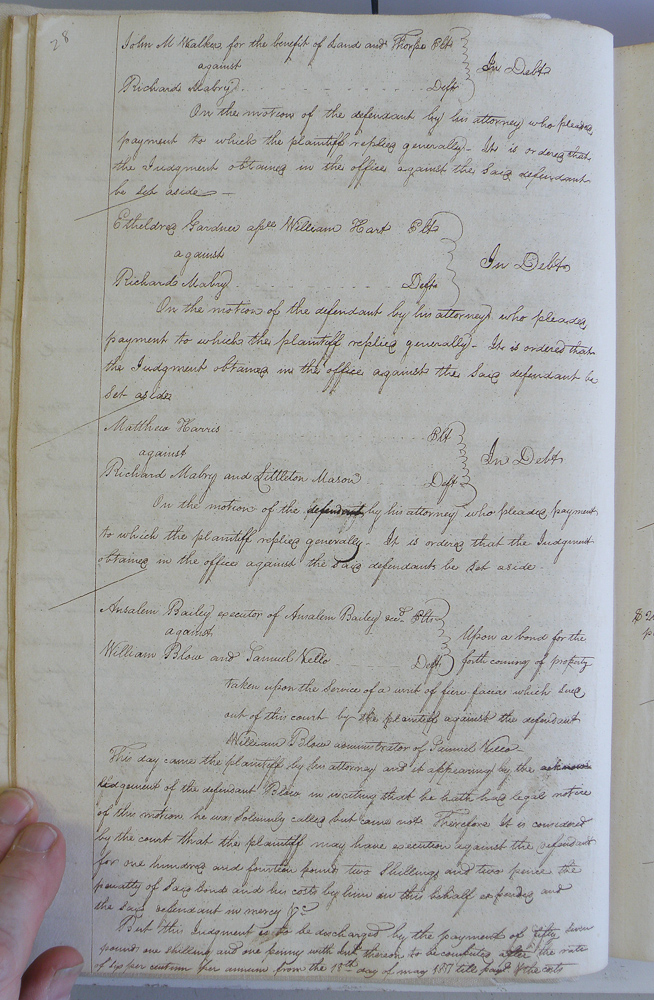 28
John M Walker for the benefit of Land and Thorpe Plt
against
In Debt
Richard Mabry Deft
On the motion of the defendant by his attorney who pleaded
payment to which the plaintiff replied generally - It is ordered that
the Judgment obtained in the office against the said defendant
be set aside -
Etheldred Gardner assee William Hart Plt
against
In Debt
Richard Mabry Deft
On the motion of the defendant by his attorney who pleaded
payment to which the plaintiff replied generally - It is ordered that
the Judgment obtained in the office against the said defendant be
set aside
Matthew Harris Plt
against
In Debt
Richard Mabry and Littleton Mason Deft
On the motion of the defendant by his attorney who pleaded payment
to which the plaintiff replied generally - It is ordered that the Judgment
obtained in the office against the said defendants be set aside -
Ansalem Bailey executor of Ansalem Bailey decd Plts
against
Upon a bond for the
William Blow and Samuel Kello Deft
forth coming of property
taken upon the service of a writ of fiere facias which sued
out of this court by the plaintiff against the defendant
William Blow administrator of Samuel Kello -
This day came the plaintiff by his attorney and it appearing by the acknow
ledgement of the defendant Blow in writing that he hath had legal notice
of this motion he was solemnly called but came not Therefore It is considered
by the court that the plaintiff may have execution against the defendant
for one hundred and fourteen pound two shillings and two pence the
penalty of said bond and his costs by him in this behalf expended and
the said defendant in mercy &c
But this Judgment is to be discharged by the payment of fifty seven
pound one shilling and one penny with Int thereon to be computed after the rate
of six per centum per annum from the 18th day of may till paid & the costs